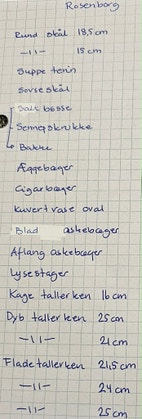 Rosenborg
Rund skål 18,5 cm
—11— 15 cm
Suppe terin
Sovse skål
Salt bøsse
Sennepskrukke
Bakke
Æggebæger
Cigarbæger
Kuvert vase oval
Blad askebæger
Aflang askebæger
Lysestager
Kage tallerken 16 cm
Dyb tallerken 25 cm
—11— 21 cm
Flade tallerken 21,5 cm
—11— 24 cm
—11— 25 cm